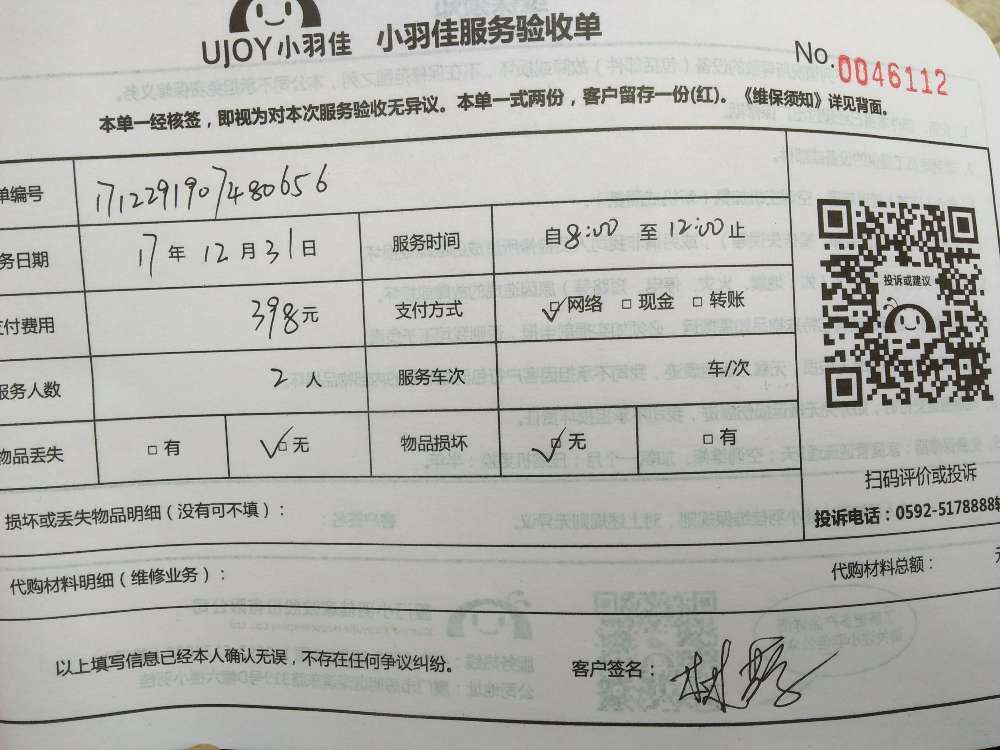 UJOY小羽佳 小羽佳服务验收单
No.0046112
本单一经核签，即视为对本次服务验收无异议。本单一式两份，客户留存一份(红)。《维保须知》详见背面。
单编号 1712291907480656
务日期 17年12月31日 服务时间 自8:00 至12:00止
付费用 398元 支付方式 ☑网络 □现金 □转账
投诉或建议
服务人数 2人 服务车次 车/次
物品丢失 □有 ☑无 物品损坏 ☑无 □有
扫码评价或投诉
损坏或丢失物品明细（没有可不填）：
投诉电话：0592-5178888转
代购材料明细（维修业务）： 代购材料总额： 元
以上填写信息已经本人确认无误，不存在任何争议纠纷。 客户签名：林